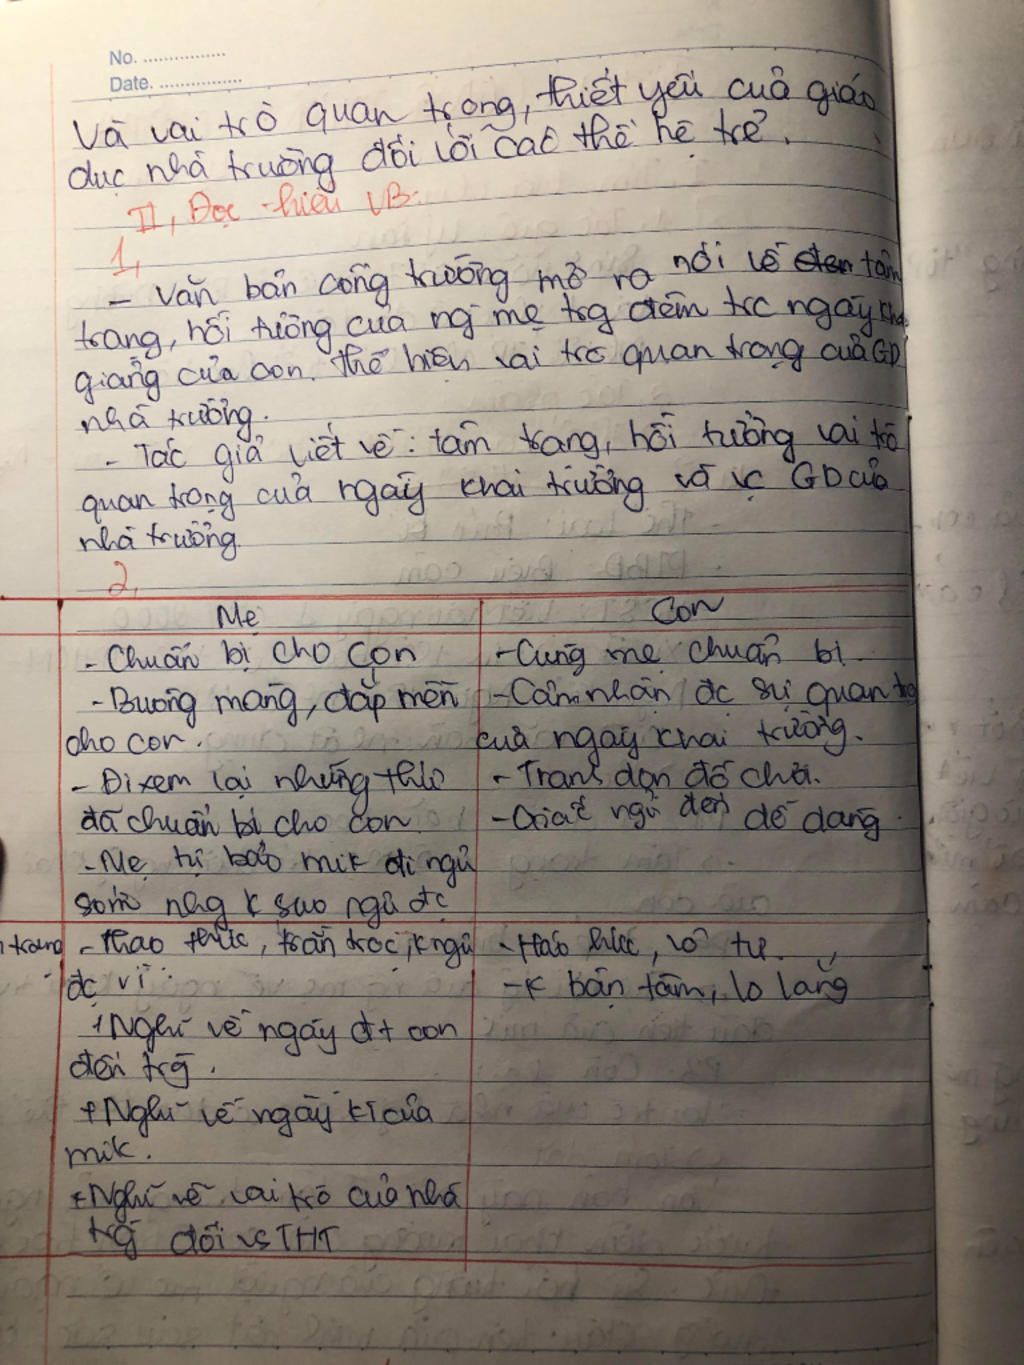 No. ................
Date. ................
Và vai trò quan trọng, thiết yếu của giáo
dục nhà trường đối với các thế hệ trẻ.
II, Đọc - hiểu VB:
1,
- Văn bản cổng trường mở ra nói về tâm
trạng, hồi tưởng của ng mẹ trg đêm trc ngày khai
giảng của con. Thể hiện vai trò quan trọng của GD
nhà trường.
- Tác giả viết về: tâm trạng, hồi tưởng vai trò
quan trọng của ngày khai trường và vc GD của
nhà trường.
2,
Mẹ
- Chuẩn bị cho con
- Buông màng, đắp mền
cho con.
- Đi xem lại những thứ
đã chuẩn bị cho con.
- Mẹ tự bảo mik đi ngủ
sớm nhg k sao ngủ đc
Con
- Cùng mẹ chuẩn bị
- Cảm nhận đc sự quan trg
của ngày khai trường.
- Tranh dọn đồ chơi.
- Giấc ngủ đến dễ dàng.
trạng
- Thao thức, trằn trọc, k ngủ
đc vì:
+ Nghĩ về ngày đt con
đến trg.
+ Nghĩ về ngày kí của
mik.
+ Nghĩ về vai trò của nhà
trg đối vs THT
- Háo hức, vô tư.
- K bận tâm, lo lắng